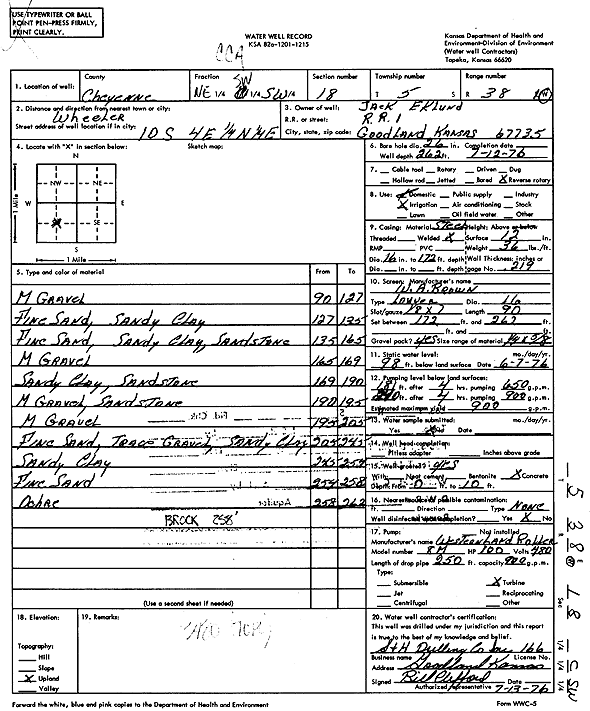 USE TYPEWRITER OR BALL
POINT PEN-PRESS FIRMLY,
PRINT CLEARLY.
WATER WELL RECORD
KSA 82a-1201-1215
Kansas Department of Health and
Environment-Division of Environment
(Water well Contractors)
Topeka, Kansas 66620
CCA
1. Location of well:
County
Cheyenne
Fraction
NE 1/4 SW 1/4 SW 1/4
Section number
18
Township number
T 5 S
Range number
R 38 W
2. Distance and direction from nearest town or city:
Wheeler
Street address of well location if in city:
10 S 4E 1/4 N 1/4 E
3. Owner of well: Jack Eklund
R.R. or street: R.R. 1
City, state, zip code: Goodland Kansas 67735
4. Locate with "X" in section below:
Sketch map:
N
NW NE
W E
SW SE
S
1 Mile
1 Mile
5. Type and color of material From To
M Gravel 90 127
Fine Sand, Sandy Clay 127 135
Fine Sand, Sandy Clay, Sandstone 135 165
M Gravel 165 169
Sandy Clay, Sandstone 169 190
M Gravel, Sandstone 190 195
M Gravel 195 205
Fine Sand, Trace Gravel, Sandy Clay 205 245
Sandy Clay 245 254
Fine Sand 254 258
Ochre 258 262
BROCK 258'
(Use a second sheet if needed)
6. Bore hole dia. 26 in. Completion date
Well depth 262 ft. 7-12-76
7. Cable tool Rotary Driven Dug
Hollow rod Jetted Bored X Reverse rotary
8. Use: Domestic Public supply Industry
X Irrigation Air conditioning Stock
Lawn Oil field water Other
9. Casing: Material Steel Height: Above or below
Threaded Welded X Surface 12 in.
RMP PVC Weight 36 lbs./ft.
Dia. 16 in. to 172 ft. depth Wall Thickness: inches or
Dia. in. to ft. depth gage No. .219
10. Screen: Manufacturer's name
W.A. Brown
Type Louver Dia. 16
Slot/gauze Length 90
Set between 172 ft. and 262 ft.
ft. and ft.
Gravel pack? yes Size range of material 1/4 x 3/8
11. Static water level: mo./day/yr.
98 ft. below land surface Date 6-7-76
12. Pumping level below land surfaces:
ft. after 4 hrs. pumping 650 g.p.m.
ft. after 4 hrs. pumping 900 g.p.m.
Estimated maximum yield 900 g.p.m.
13. Water sample submitted: mo./day/yr.
Yes No Date
14. Well head completion:
Pitless adapter Inches above grade
15. Well grouted? yes
With: Neat cement Bentonite X Concrete
Depth: From 0 ft. to 10 ft.
16. Nearest source of possible contamination:
ft. Direction Type None
Well disinfected upon completion? Yes X No
17. Pump: Not installed
Manufacturer's name Westernland Roller
Model number 8M HP 100 Volts 480
Length of drop pipe 250 ft. capacity 900 g.p.m.
Type:
Submersible X Turbine
Jet Reciprocating
Centrifugal Other
18. Elevation:
Topography:
Hill
Slope
X Upland
Valley
19. Remarks:
20. Water well contractor's certification:
This well was drilled under my jurisdiction and this report
is true to the best of my knowledge and belief.
S+H Drilling Co Inc 166
Business name License No.
Address Goodland Kansas
Signed Bill Clifford 7-13-76
Authorized representative
Forward the white, blue and pink copies to the Department of Health and Environment
Form WWC-5